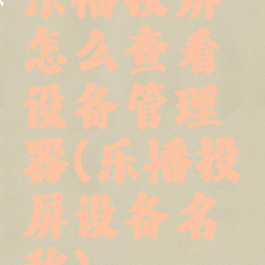 乐播投屏
怎么查看
设备管理
器(乐播投
屏设备名
称)